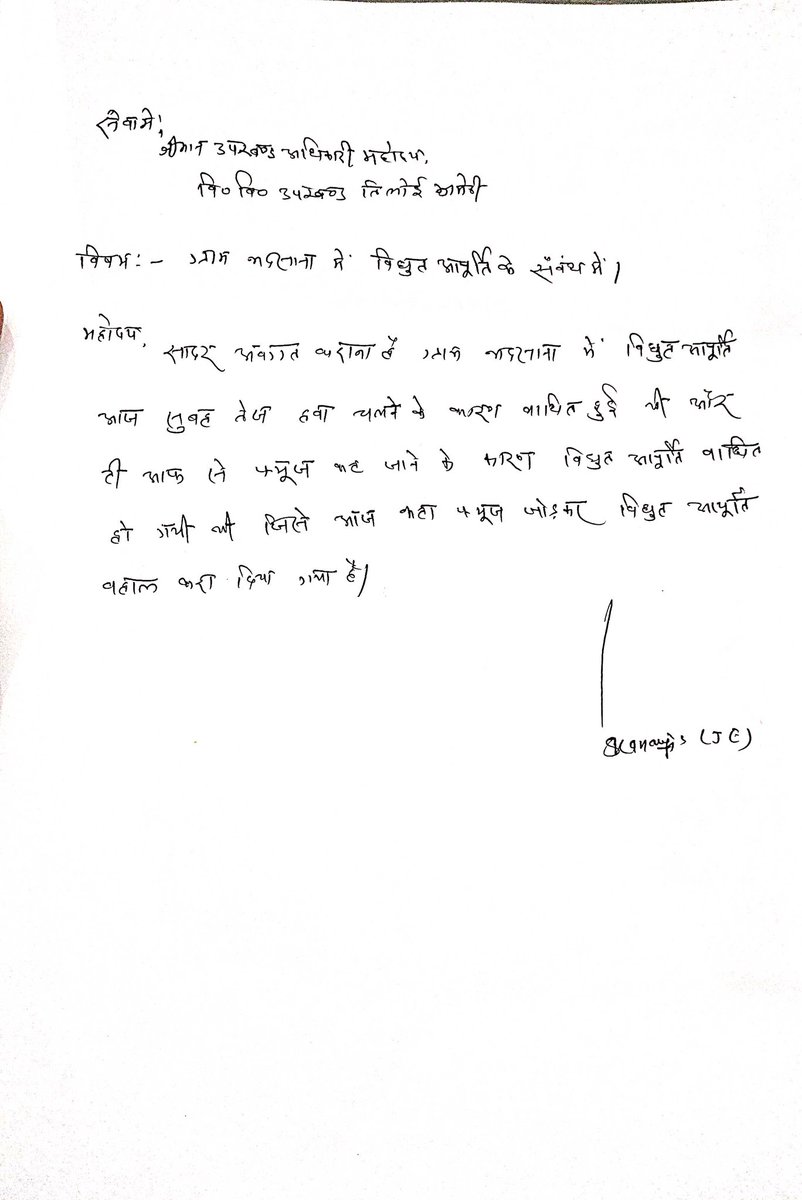 सेवा में,
श्रीमान उपखण्ड अधिकारी महोदय,
वि० वि० उपखण्ड तिलोई अमेठी
विषय :- ग्राम में विधुत आपूर्ति के संबंध में।
महोदय, सादर अवगत कराना है ग्राम में विधुत आपूर्ति
आज सुबह तेज हवा चलने के कारण बाधित हुई थी और
टी आफ से फ्यूज कट जाने के कारण विधुत आपूर्ति बाधित
हो गयी थी जिसे आज कटा फ्यूज जोड़कर विधुत आपूर्ति
बहाल करा दिया गया है।
(JE)